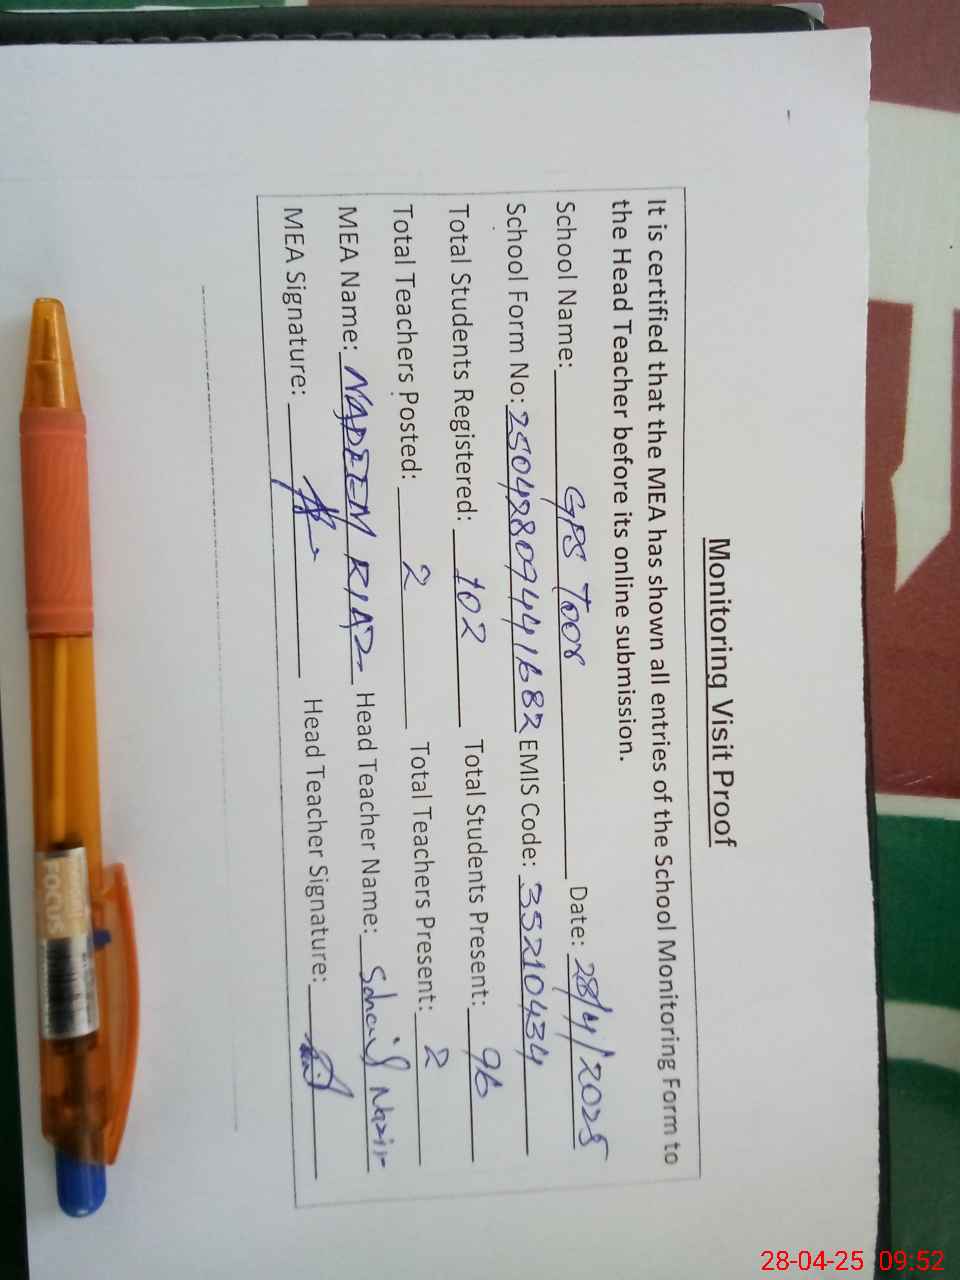 Monitoring Visit Proof
It is certified that the MEA has shown all entries of the School Monitoring Form to
the Head Teacher before its online submission.
School Name: GPS Toor Date: 28/4/2025
School Form No: 250428094441682 EMIS Code: 35210434
Total Students Registered: 102 Total Students Present: 96
Total Teachers Posted: 2 Total Teachers Present: 2
MEA Name: NADEEM RIAZ Head Teacher Name: Sohail Nazir
MEA Signature: Head Teacher Signature:
FOCUS
28-04-25 09:52